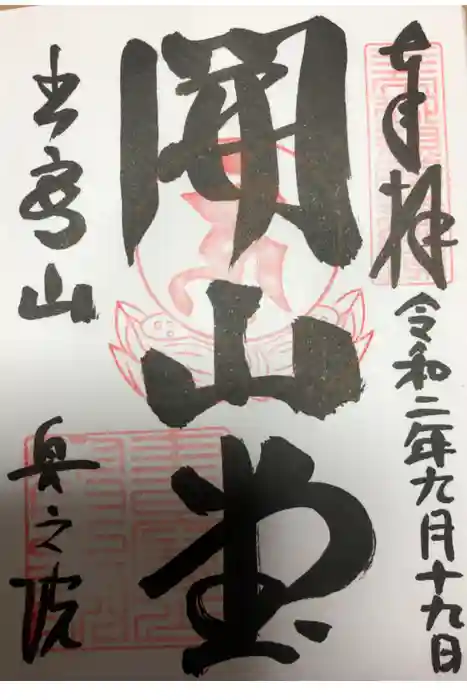 奉拝
令和二年九月十九日
開山堂
書寫山
奥之院